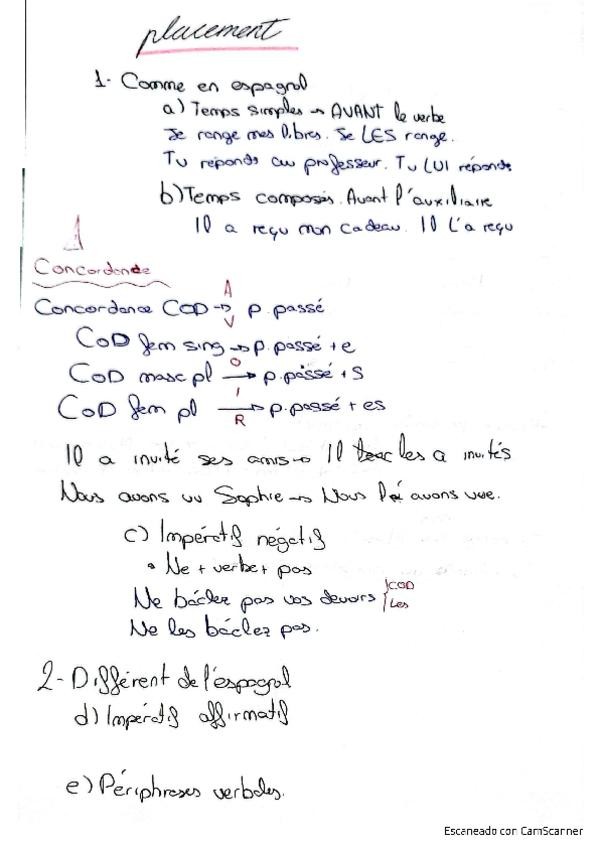 placement
1- Comme en espagnol
a) Temps simples → AVANT le verbe
Je range mes libres. Je LES range.
Tu réponds au professeur. Tu LUI réponds
b) Temps composés. Avant l'auxiliaire
Il a reçu mon cadeau. Il L'a reçu
Concordance
Concordance COD → p. passé
COD fem sing → p. passé + e
COD masc pl → p. passé + s
COD fem pl → p. passé + es
A
V
O
I
R
Il a invité ses amis → Il les a invités
Nous avons vu Sophie → Nous l'avons vue.
c) Impératif négatif
• Ne + verbe + pas
Ne bâclez pas vos devoirs } COD
Les
Ne les bâclez pas.
2- Différent de l'espagnol
d) Impératif affirmatif
e) Périphrases verbales.
Escaneado con CamScanner